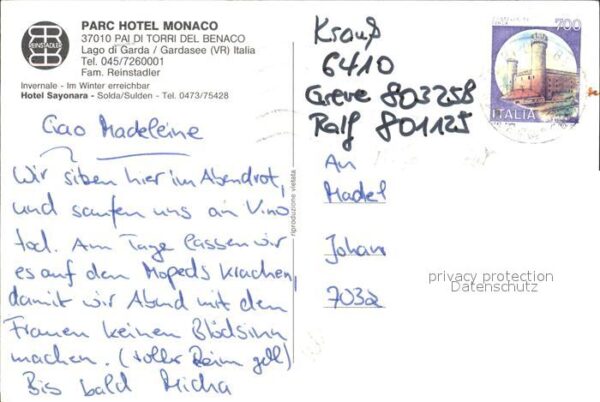 REINSTADLER
PARC HOTEL MONACO
37010 PAI DI TORRI DEL BENACO
Lago di Garda / Gardasee (VR) Italia
Tel. 045/7260001
Fam. Reinstadler
Invernale - Im Winter erreichbar
Hotel Sayonara - Solda/Sulden - Tel. 0473/75428
Ciao Madeleine
Wir sitzen hier im Abendrot,
und saufen uns an Vino
tod. Am Tage lassen wir
es auf den Mopeds krachen,
damit wir Abend mit den
Frauen keinen Blödsinn
machen. (toller Reim gell)
Bis bald Micha
riproduzione vietata
Krauß
6410
Greve 803258
Ralf 801125
An
Madel
Johan
7032
privacy protection
Datenschutz
700
ITALIA